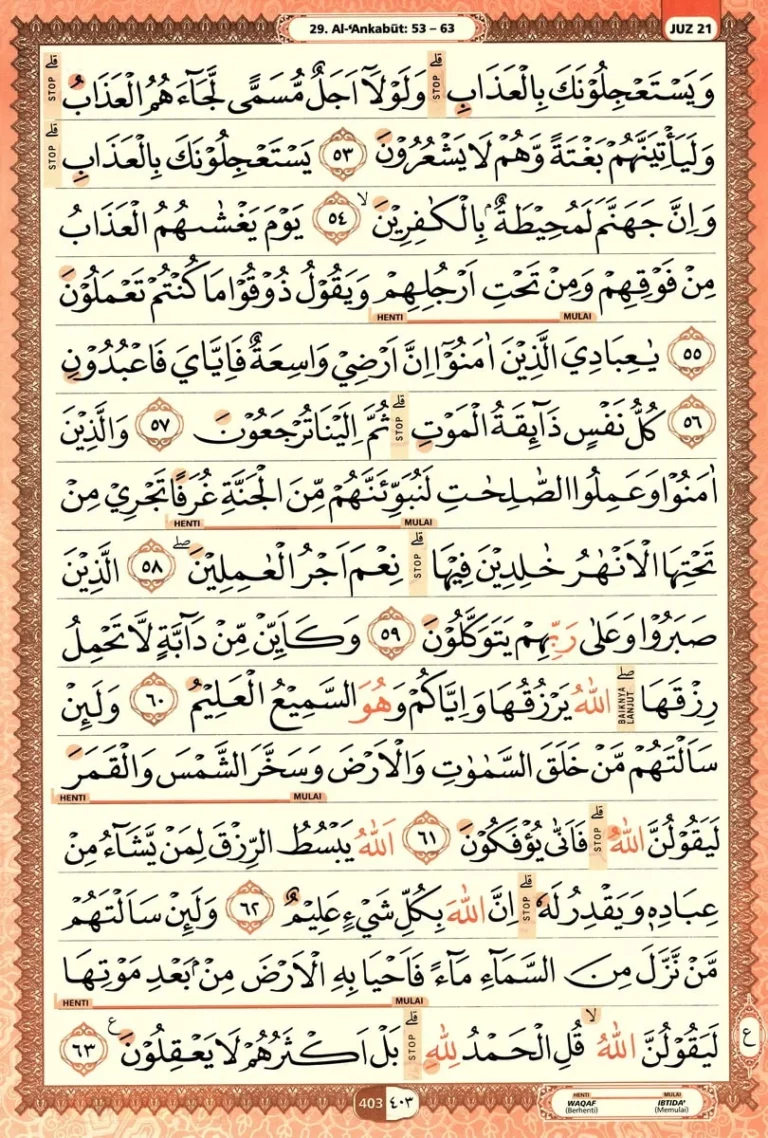 29. Al-‘Ankabūt: 53 – 63
JUZ 21
وَيَسْتَعْجِلُوْنَكَ بِالْعَذَابِۗ وَلَوْلَآ اَجَلٌ مُّسَمًّى لَّجَاۤءَهُمُ الْعَذَابُۗ
STOP
STOP
وَلَيَأْتِيَنَّهُمْ بَغْتَةً وَّهُمْ لَا يَشْعُرُوْنَ ٥٣ يَسْتَعْجِلُوْنَكَ بِالْعَذَابِۗ
STOP
وَاِنَّ جَهَنَّمَ لَمُحِيْطَةٌ ۢ بِالْكٰفِرِيْنَۙ ٥٤ يَوْمَ يَغْشٰىهُمُ الْعَذَابُ
مِنْ فَوْقِهِمْ وَمِنْ تَحْتِ اَرْجُلِهِمْ وَيَقُوْلُ ذُوْقُوْا مَا كُنْتُمْ تَعْمَلُوْنَ
HENTI MULAI
٥٥ يٰعِبَادِيَ الَّذِيْنَ اٰمَنُوْٓا اِنَّ اَرْضِيْ وَاسِعَةٌ فَاِيَّايَ فَاعْبُدُوْنِ
٥٦ كُلُّ نَفْسٍ ذَاۤىِٕقَةُ الْمَوْتِۗ ثُمَّ اِلَيْنَا تُرْجَعُوْنَ ٥٧ وَالَّذِيْنَ
STOP
اٰمَنُوْا وَعَمِلُوا الصّٰلِحٰتِ لَنُبَوِّئَنَّهُمْ مِّنَ الْجَنَّةِ غُرَفًا تَجْرِيْ مِنْ
HENTI MULAI
تَحْتِهَا الْاَنْهٰرُ خٰلِدِيْنَ فِيْهَاۗ نِعْمَ اَجْرُ الْعٰمِلِيْنَۖ ٥٨ الَّذِيْنَ
STOP
صَبَرُوْا وَعَلٰى رَبِّهِمْ يَتَوَكَّلُوْنَ ٥٩ وَكَاَيِّنْ مِّنْ دَاۤبَّةٍ لَّا تَحْمِلُ
رِزْقَهَاۖ اللّٰهُ يَرْزُقُهَا وَاِيَّاكُمْ وَهُوَ السَّمِيْعُ الْعَلِيْمُ ٦٠ وَلَىِٕنْ
BAIKNYA LANJUT
سَاَلْتَهُمْ مَّنْ خَلَقَ السَّمٰوٰتِ وَالْاَرْضَ وَسَخَّرَ الشَّمْسَ وَالْقَمَرَ
HENTI MULAI
لَيَقُوْلُنَّ اللّٰهُۗ فَاَنّٰى يُؤْفَكُوْنَ ٦١ اَللّٰهُ يَبْسُطُ الرِّزْقَ لِمَنْ يَّشَاۤءُ مِنْ
STOP
عِبَادِهٖ وَيَقْدِرُ لَهٗۗ اِنَّ اللّٰهَ بِكُلِّ شَيْءٍ عَلِيْمٌ ٦٢ وَلَىِٕنْ سَاَلْتَهُمْ
STOP
مَّنْ نَّزَّلَ مِنَ السَّمَاۤءِ مَاۤءً فَاَحْيَا بِهِ الْاَرْضَ مِنْۢ بَعْدِ مَوْتِهَا
HENTI MULAI
لَيَقُوْلُنَّ اللّٰهُۙ قُلِ الْحَمْدُ لِلّٰهِۗ بَلْ اَكْثَرُهُمْ لَا يَعْقِلُوْنَ ࣖ ٦٣
STOP
ع
403 ٤٠٣
HENTI MULAI
WAQAF IBTIDA’
(Berhenti) (Memulai)